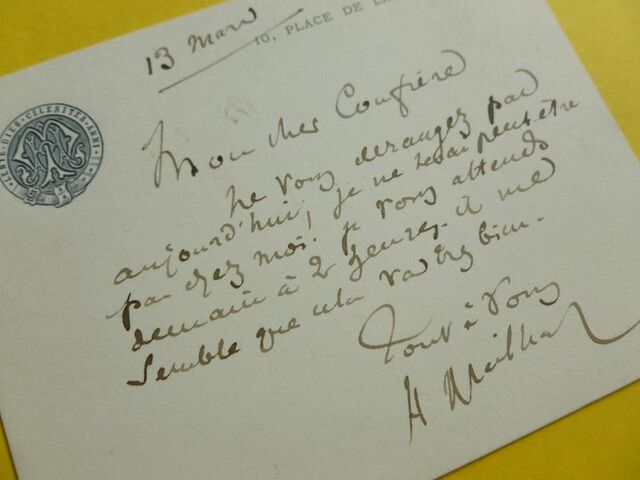 13 Mars
10, PLACE DE LA
Mon cher Confrère
Ne vous dérangez pas
aujourd'hui, je ne serai peut-être
pas chez moi. je vous attends
demain à 2 heures, il me
semble que cela va très bien.
Tout à vous
H Meilhac